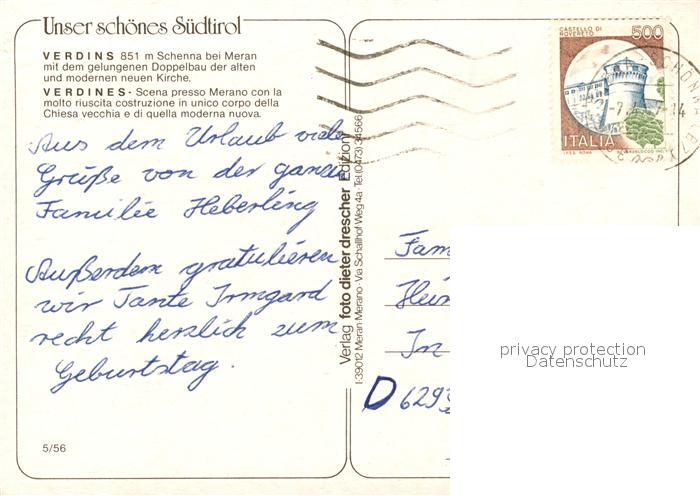 Unser schönes Südtirol
VERDINS 851 m Schenna bei Meran
mit dem gelungenen Doppelbau der alten
und modernen neuen Kirche.
VERDINES - Scena presso Merano con la
molto riuscita costruzione in unico corpo della
Chiesa vecchia e di quella moderna nuova.
Aus dem Urlaub viele
Grüße von der ganzen
Familie Heberling
Außerdem gratulieren
wir Tante Irmgard
recht herzlich zum
Geburtstag.
5/56
Verlag foto dieter drescher Edizioni
I-39012 Meran Merano · Via Schallhof Weg 4a · Tel (0473) 34566
CASTELLO DI
ROVERETO
500
ITALIA
Fam
Hein
In
D 6293
privacy protection
Datenschutz